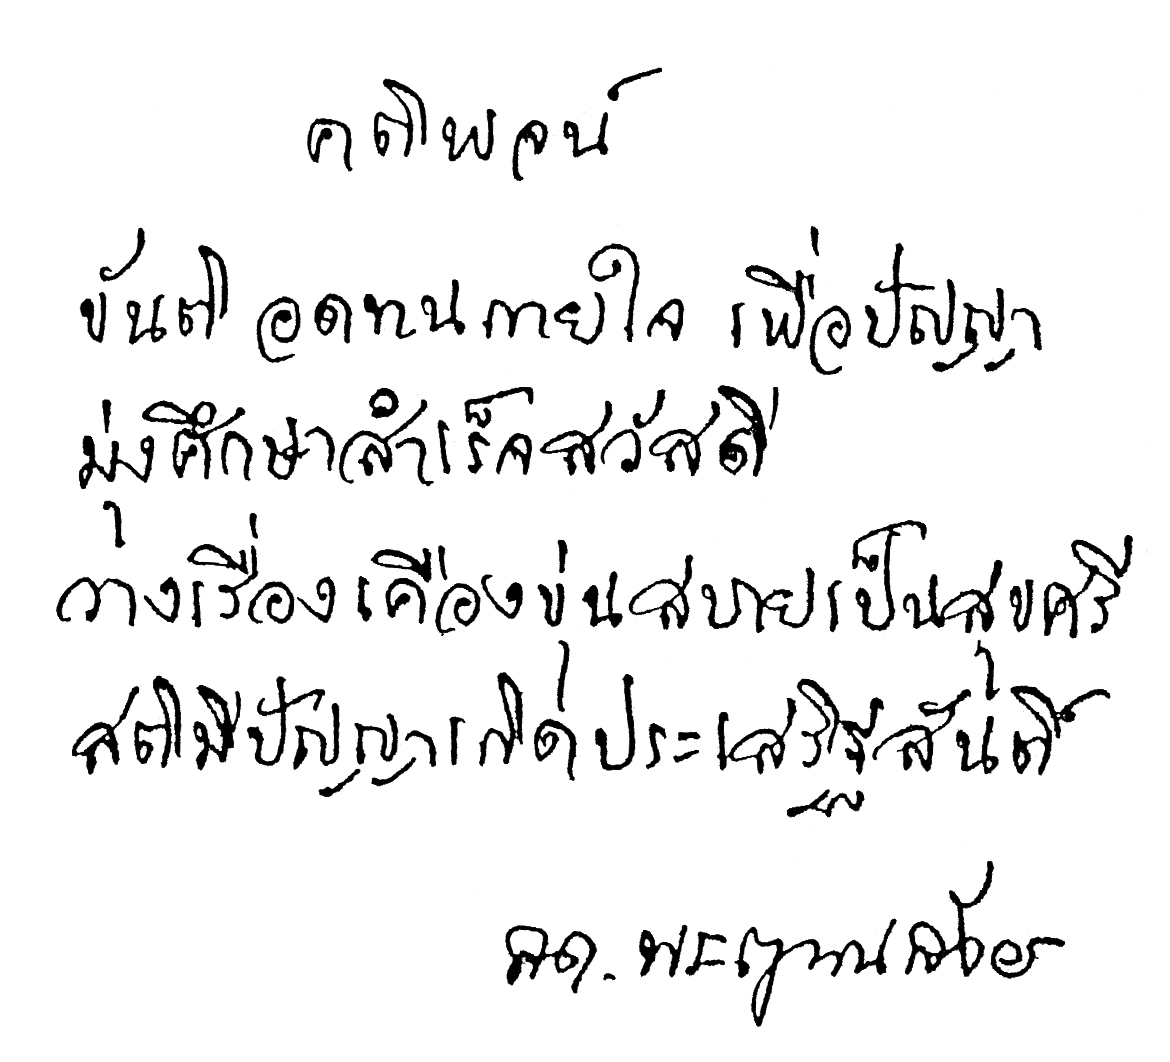 คติพจน์
ขันติ อดทนกายใจ เพื่อปัญญา
มุ่งศึกษาสำเร็จสวัสดี
วางเรื่องเคืองขุ่นสบายเป็นสุขศรี
สติมีปัญญาเกิดประเสริฐสันติ์